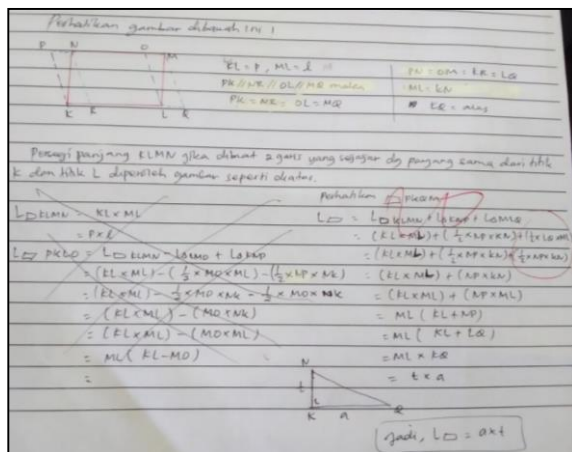 Perhatikan gambar dibawah ini !
P N O M
K R L Q
KL = P, ML = l
PK // NR // OL // MQ maka
PK = NR = OL = MQ
PN = OM = KR = LQ
ML = KN
KQ = alas
Persegi panjang KLMN jika dibuat 2 garis yang sejajar dg panjang sama dari titik
K dan titik L diperoleh gambar seperti diatas.
L□ KLMN = KL × ML
= P × l
L▱ PKLO = L□ KLMN - L△ LMO + L△ KNP
= (KL × ML) - (½ × MO × ML) - (½ × NP × NK)
= (KL × ML) - ½ × MO × NK - ½ × MO × NK
= (KL × ML) - (MO × NK)
= (KL × ML) - (MO × ML)
= ML ( KL - MO )
=
Perhatikan
L▱ = L□ KLMN + L△ KNP + L△ MLQ
= (KL × ML) + (½ × NP × KN) + (½ × LQ × ML)
= (KL × ML) + (½ × NP × KN) + (½ × NP × KN)
= (KL × ML) + (NP × KN)
= (KL × ML) + (NP × ML)
= ML ( KL + NP )
= ML ( KL + LQ )
= ML × KQ
= t × a
N
t
K a Q
Jadi, L▱ = a × t